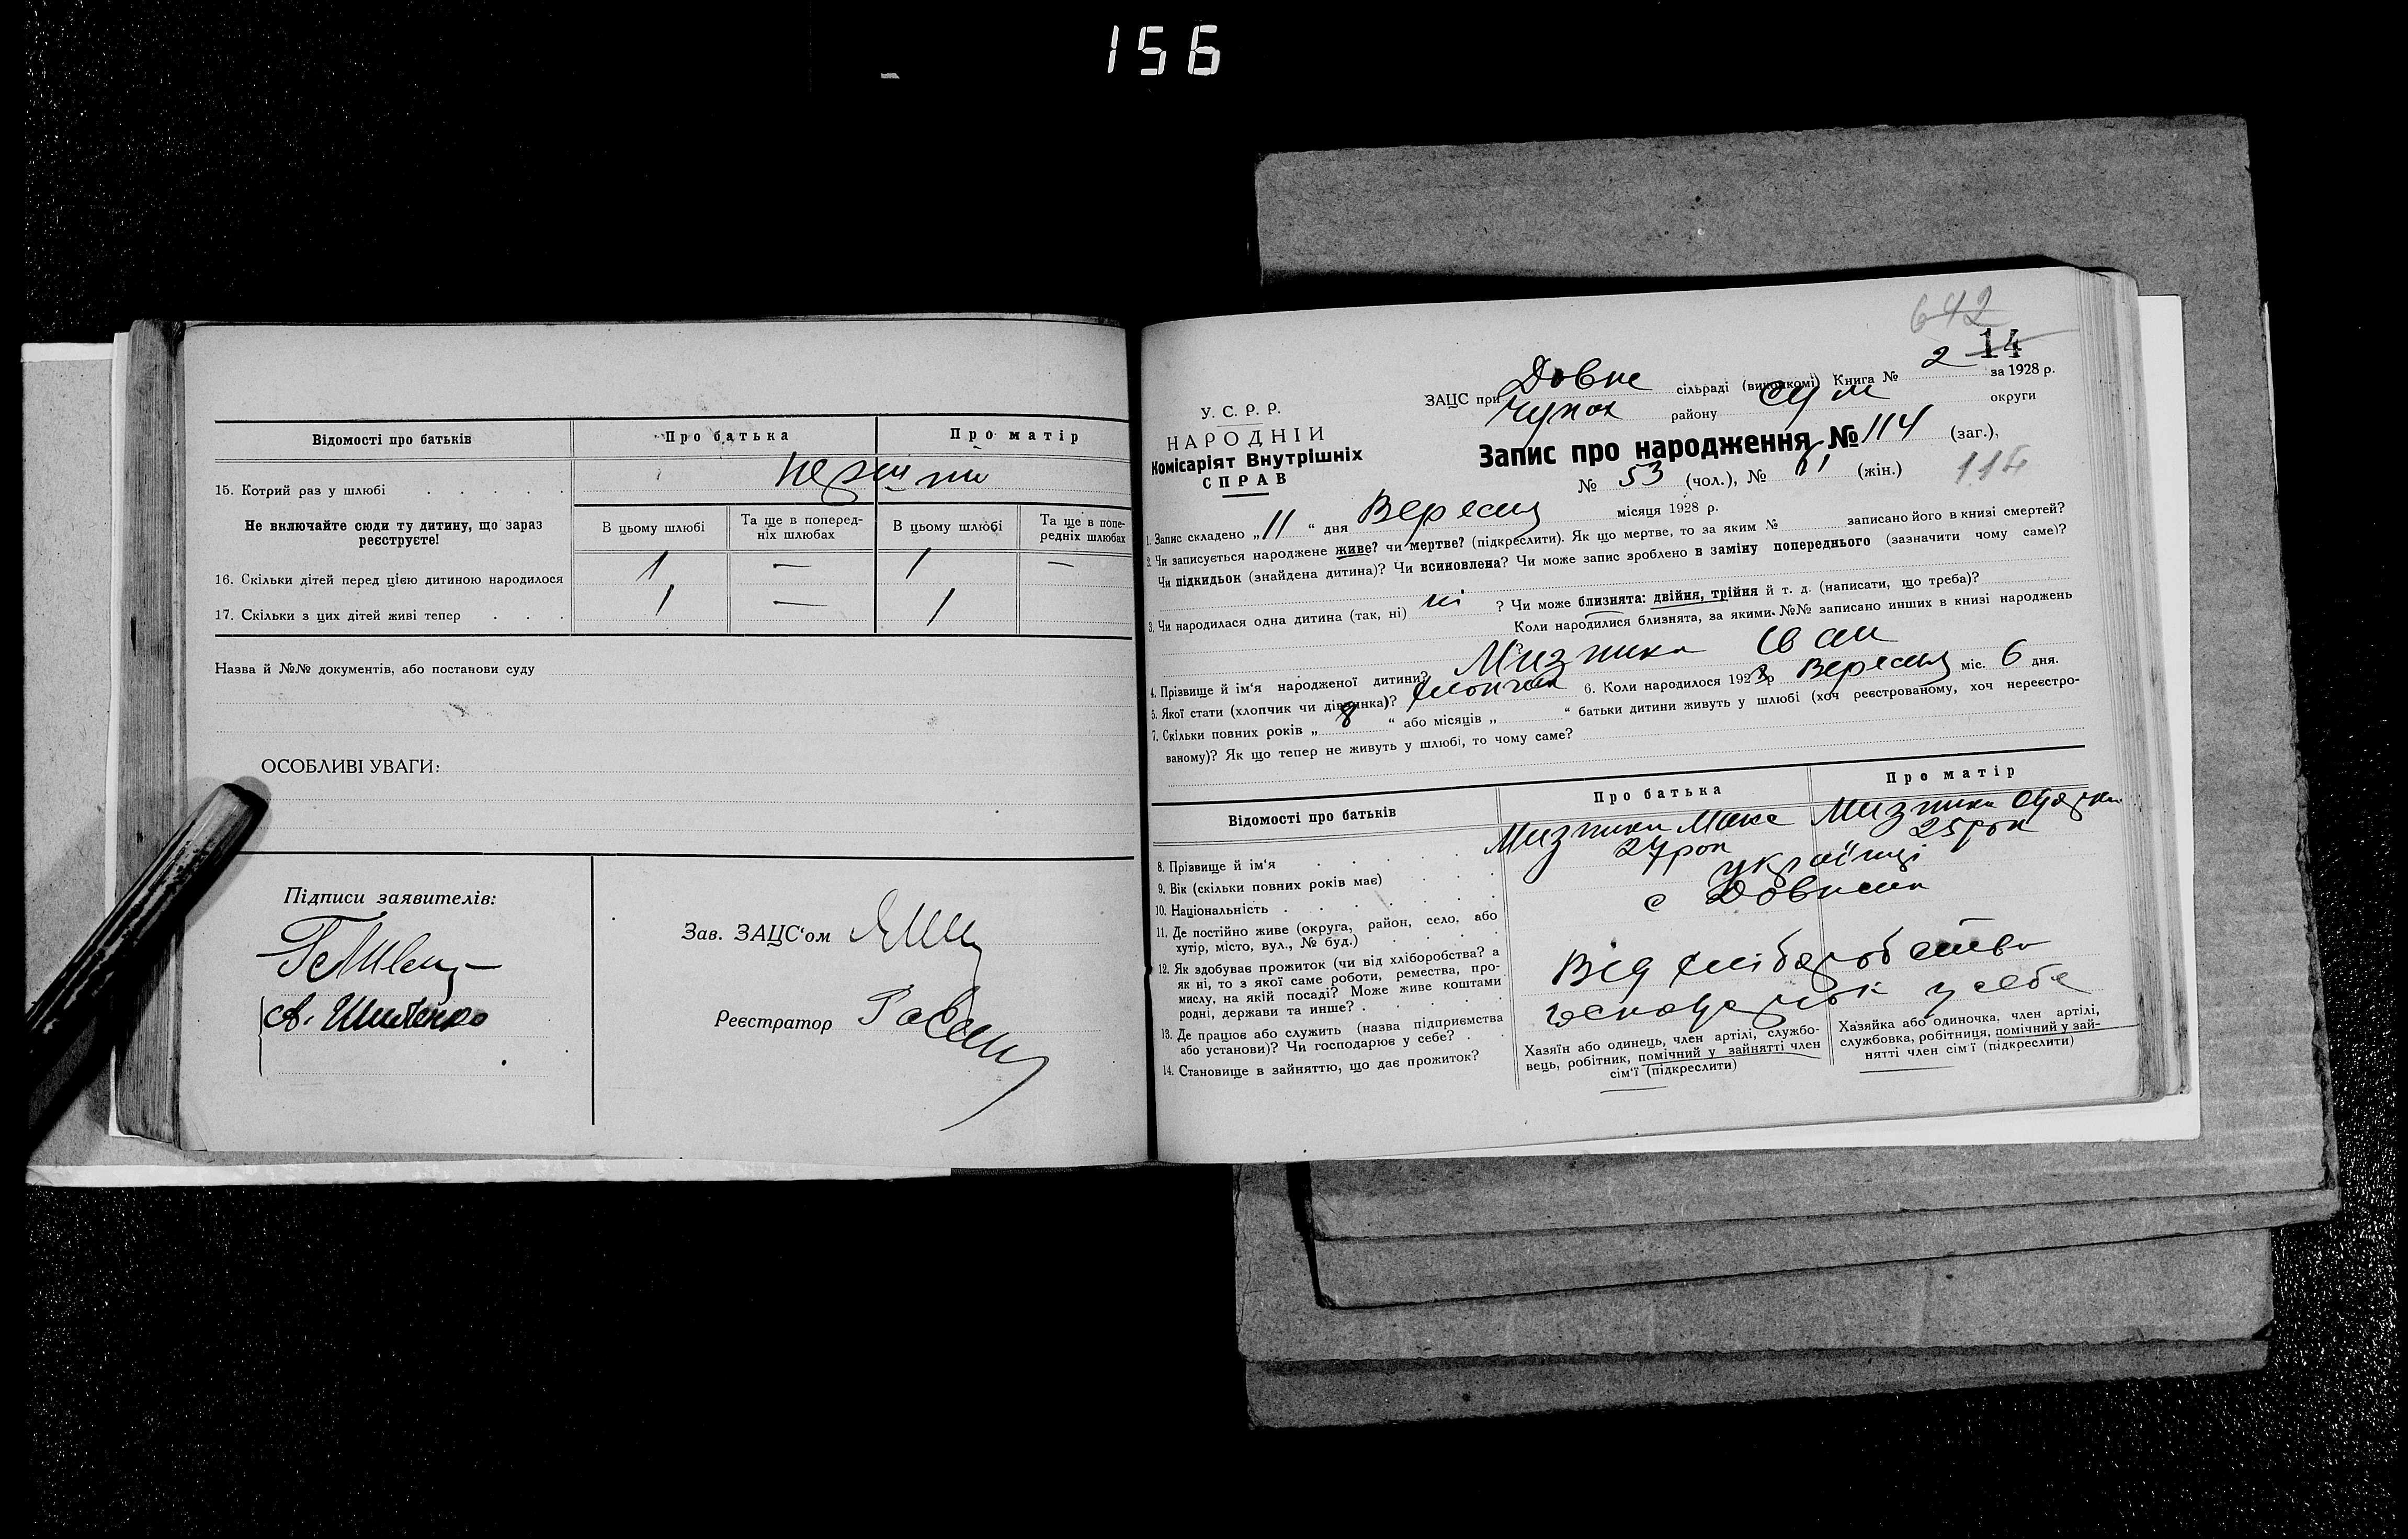 156
Відомості про батьків
Про батька
Про матір
15. Котрий раз у шлюбі . . . . .
Не включайте сюди ту дитину, що зараз реєструєте!
В цьому шлюбі
Та ще в поперед-
ніх шлюбах
В цьому шлюбі
Та ще в попе-
редніх шлюбах
16. Скільки дітей перед цією дитиною народилося 1 — 1 —
17. Скільки з цих дітей живі тепер . . . 1 — 1
Назва й №№ документів, або постанови суду
ОСОБЛИВІ УВАГИ:
Підписи заявителів:
Зав. ЗАЦС'ом
Реєстратор
642
14
ЗАЦС при Довже сільраді (виконкомі) Книга № 2 за 1928 р.
району Сум округи
У. С. Р. Р.
НАРОДНІЙ
Комісаріят Внутрішніх
СПРАВ
Запис про народження № 114 (заг.),
№ 53 (чол.), № 61 (жін.) 114
1. Запис складено „11“ дня Вересня місяця 1928 р.
2. Чи записується народжене живе? чи мертве? (підкреслити). Як що мертве, то за яким № записано його в книзі смертей?
Чи підкидьок (знайдена дитина)? Чи всиновлена? Чи може запис зроблено в заміну попереднього (зазначити чому саме)?
3. Чи народилася одна дитина (так, ні) ні ? Чи може близнята: двійня, трійня й т. д. (написати, що треба)?
Коли народилися близнята, за якими №№ записано инших в книзі народжень
4. Прізвище й ім'я народженої дитини? Музика Іван
5. Якої стати (хлопчик чи дівчинка)? хлопчик 6. Коли народилося 1928 р Вересня міс. 6 дня.
7. Скільки повних років „8“ або місяців „ “ батьки дитини живуть у шлюбі (хоч реєстрованому, хоч нереєстро-
ваному)? Як що тепер не живуть у шлюбі, то чому саме?
Відомості про батьків
Про батька
Про матір
8. Прізвище й ім'я . . . . . Музика Музика
9. Вік (скільки повних років має) . . . 27 рок 25 рок
10. Національність . . . . . . українці
11. Де постійно живе (округа, район, село, або
хутір, місто, вул., № буд.) . . . .
с
12. Як здобуває прожиток (чи від хліборобства? а
як ні, то з якої саме роботи, ремества, про-
мислу, на якій посаді? Може живе коштами
родні, держави та инше? . . . . .
Від хліборобства
13. Де працює або служить (назва підприємства
або установи)? Чи господарює у себе? . .
у себе
14. Становище в зайняттю, що дає прожиток?
Хазяїн або одинець, член артілі, службо-
вець, робітник, помічний у зайнятті член
сім'ї (підкреслити)
Хазяйка або одиночка, член артілі,
службовка, робітниця, помічний у зай-
нятті член сім'ї (підкреслити)